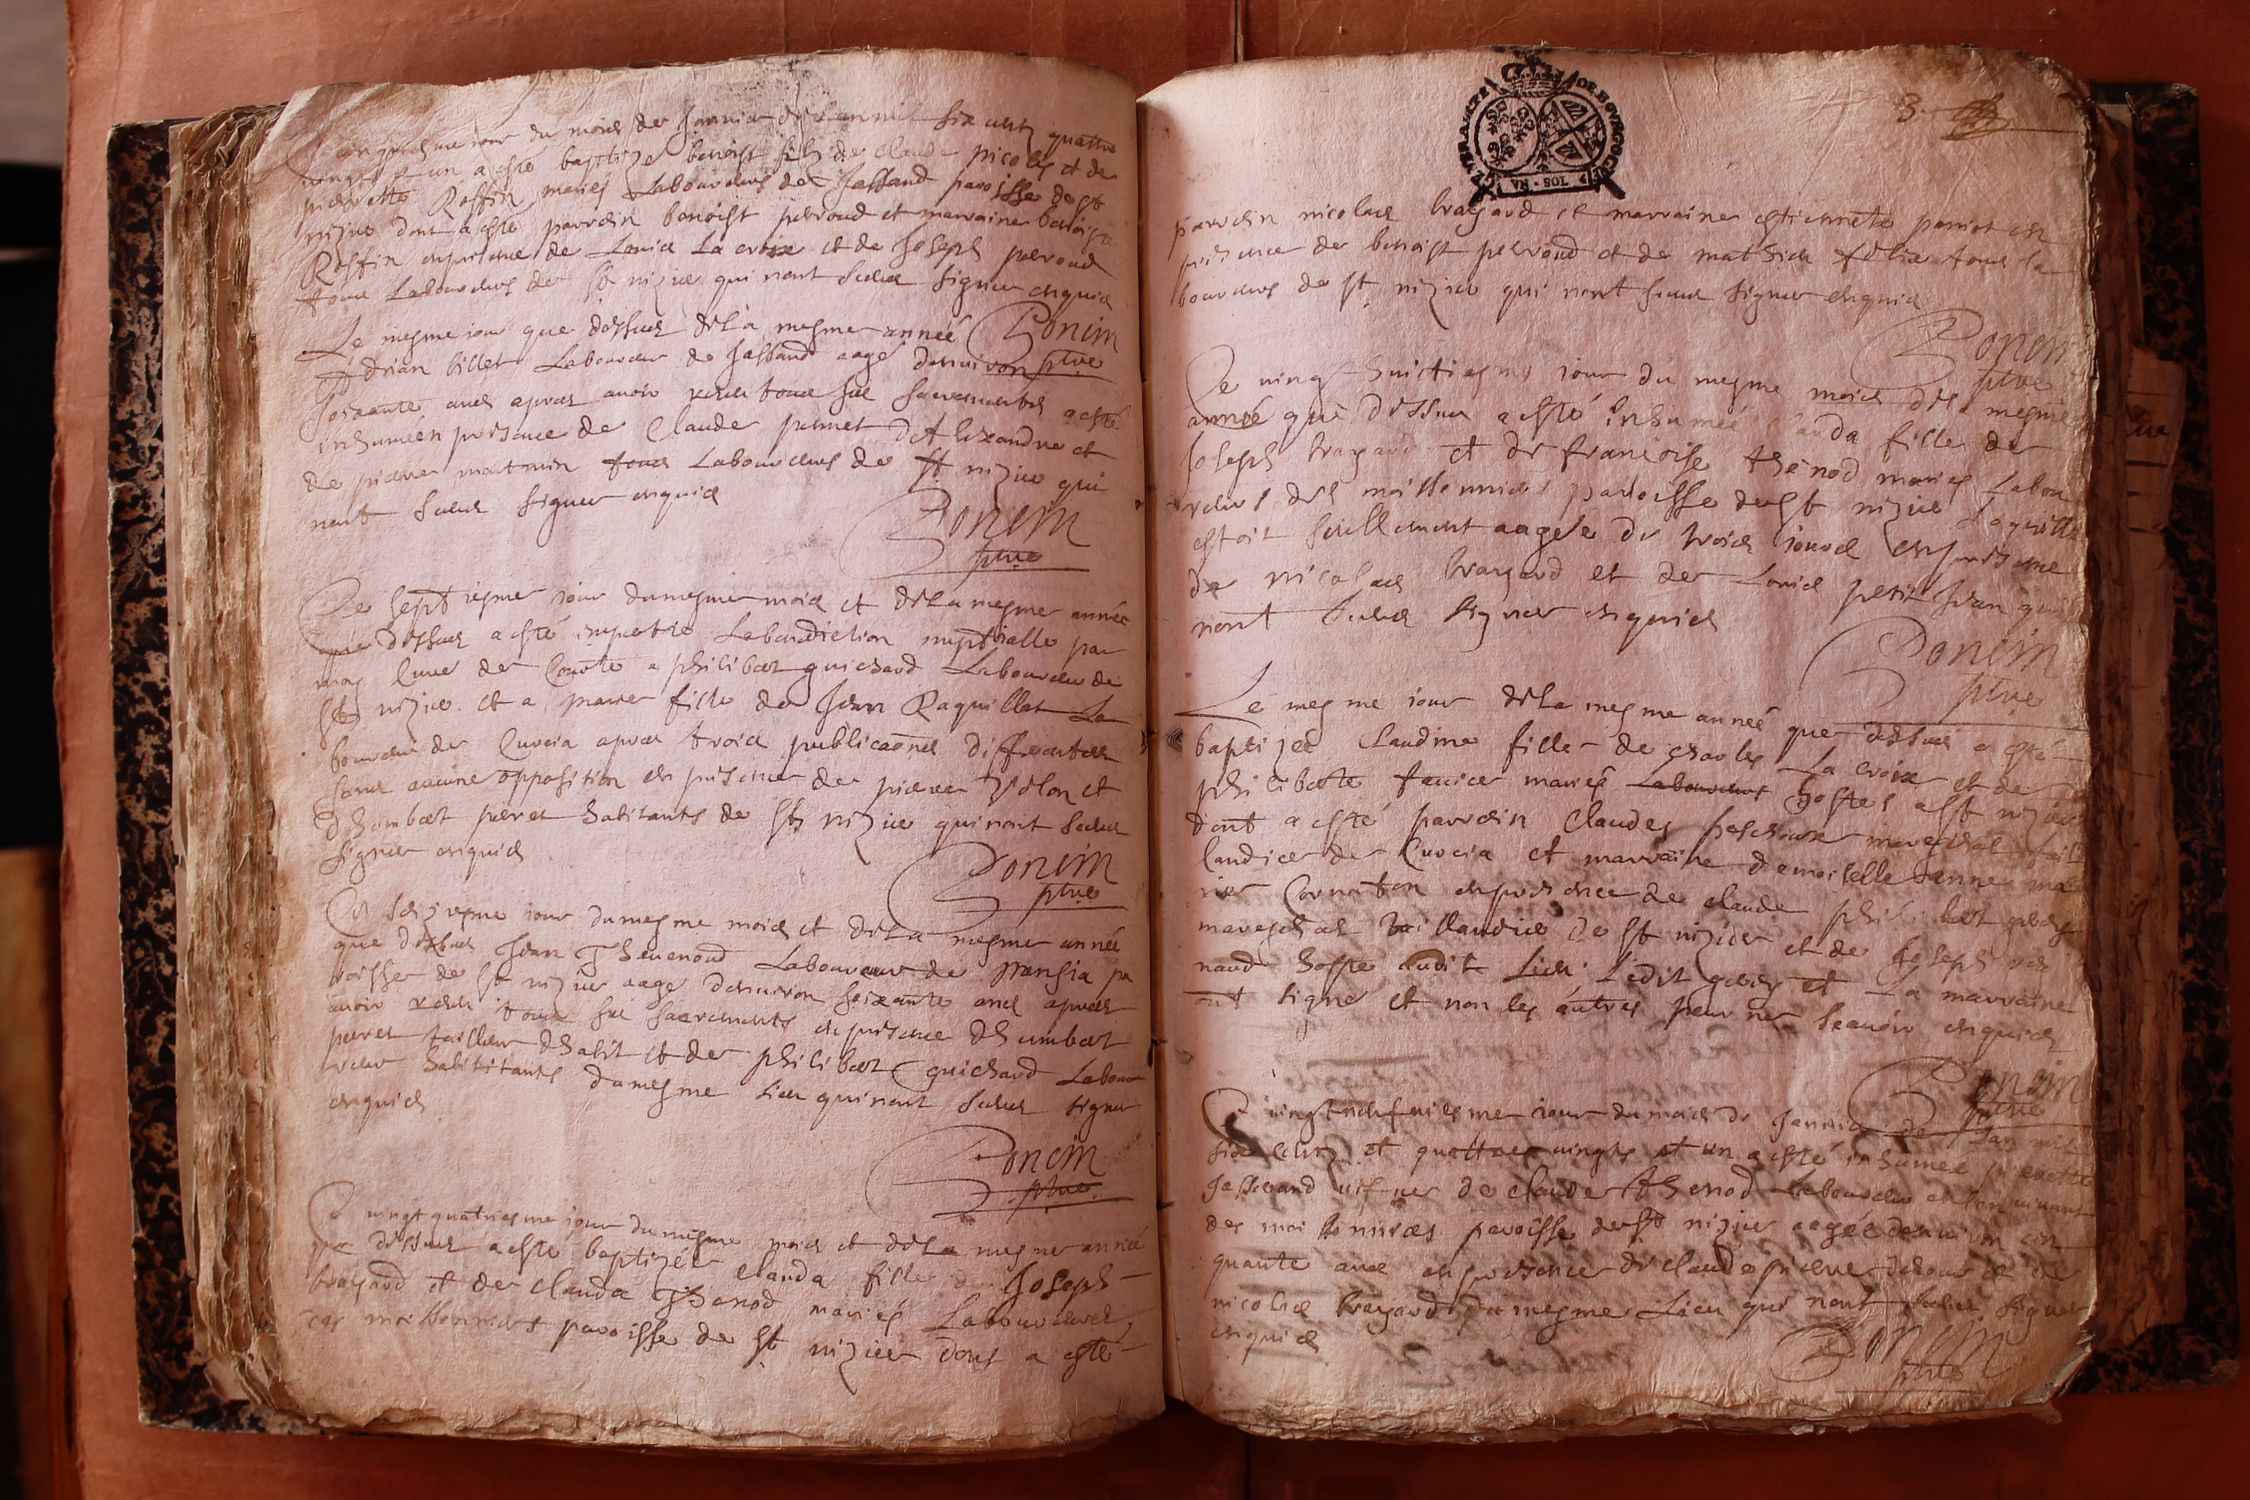 Ce cinquiesme iour du mois de Januier de lan mil six cents quattre
vingts et un a esté baptizé benoist filz de claude nicolas et de
pierrette Roffin mariés Laboureurs de Jassand paroisse de St
nizier dont a esté parrein benoist perroud et marraine benoiste
Roffin en presence de Louis La croix et de Joseph perroud
tous Laboureurs de St nizier qui nont sceus signer enquis
Ponein
ptre
Le mesme iour que dessus de la mesme anneé
Adrian billet Laboureur de Jassand aagé denuiron
soixante ans apres auoir receu tous ses sacrements a esté
inhumé en presence de Claude pernet d'Alexandre et
de pierre martinin tous Laboureurs de St nizier qui
nont sceus signer enquis
Ponein
ptre
Ce septiesme iour du mesme mois et de la mesme année
que dessus a esté impertie La benediction nuptialle par
moy Cure de Courte a philibert guichard Laboureur de
St nizier et a marie fille de Jean Raquillet La
boureur de Curcia apres trois publicaõns differentes
sans aucune opposition en presence de pierre et
dhombert perret habitants de St nizier qui nont sceus
signer enquis
Ponein
ptre
Ce seiziesme iour du mesme mois et de la mesme année
que dessus Jean Theuenoud Laboureur de pa
roisse de St nizier aagé denuiron soixante ans apres
auoir receu tous ses sacrements en presence dhumbert
perret tailleur dhabit et de philibert guichard Labou
reur habitants du mesme lieu qui nont sceus signer
enquis
Ponein
ptre
Ce vingt quatriesme iour du mesme mois et de la mesme anneé
que dessus a esté baptizée clauda fille de Joseph
brayard et de clauda Thenod mariés Laboureurs
des maisonnies paroisse de St nizier dont a esté
3
GENERALITE DE BOVRGOGNE
VN · SOL
parrein nicolas brayard et marraine estiennete en
presence de benoist perroud et de mathieu tous la
boureurs de St nizier qui nont sceus signer enquis
Ponein
ptre
Ce vingt huictiesme iour du mesme mois de la mesme
anneé que dessus a esté inhumée clauda fille de
Joseph brayard et de françoise thenod mariés Labou
reurs des maisonnies paroisse de St nizier Laquelle
estoit seullement aageé de trois iours en presence
de nicolas brayard et de Louis petit Jean qui
nont sceus signer enquis
Ponein
ptre
Le mesme iour de la mesme anneé que dessus a esté
baptizeé Claudine fille de charles La croix et de
philiberte mariés Laboureurs hostes a St nizier
dont a esté parrein Claude mareschal tail
landier de Curcia et marraine demoiselle anne
Cornaton en presence de claude philibert
mareschal taillandier de St nizier et de Joseph
naud hoste audit lieu Ledit et La marraine
ont signé et non les autres pour ne scauoir enquis
Ponein
ptre
Ce vingt neufuiesme iour du mois de Januier de Lan mil
six cents et quattre vingts et un a esté inhumeé pierrette
Jasserand de claude thenod Laboureur en son viuant
des maisonnies paroisse de St nizier aageé denuiron cin
quante ans en presence de claude pierre et de
nicolas brayard du mesme Lieu qui nont sceus signer
enquis
Ponein
ptre